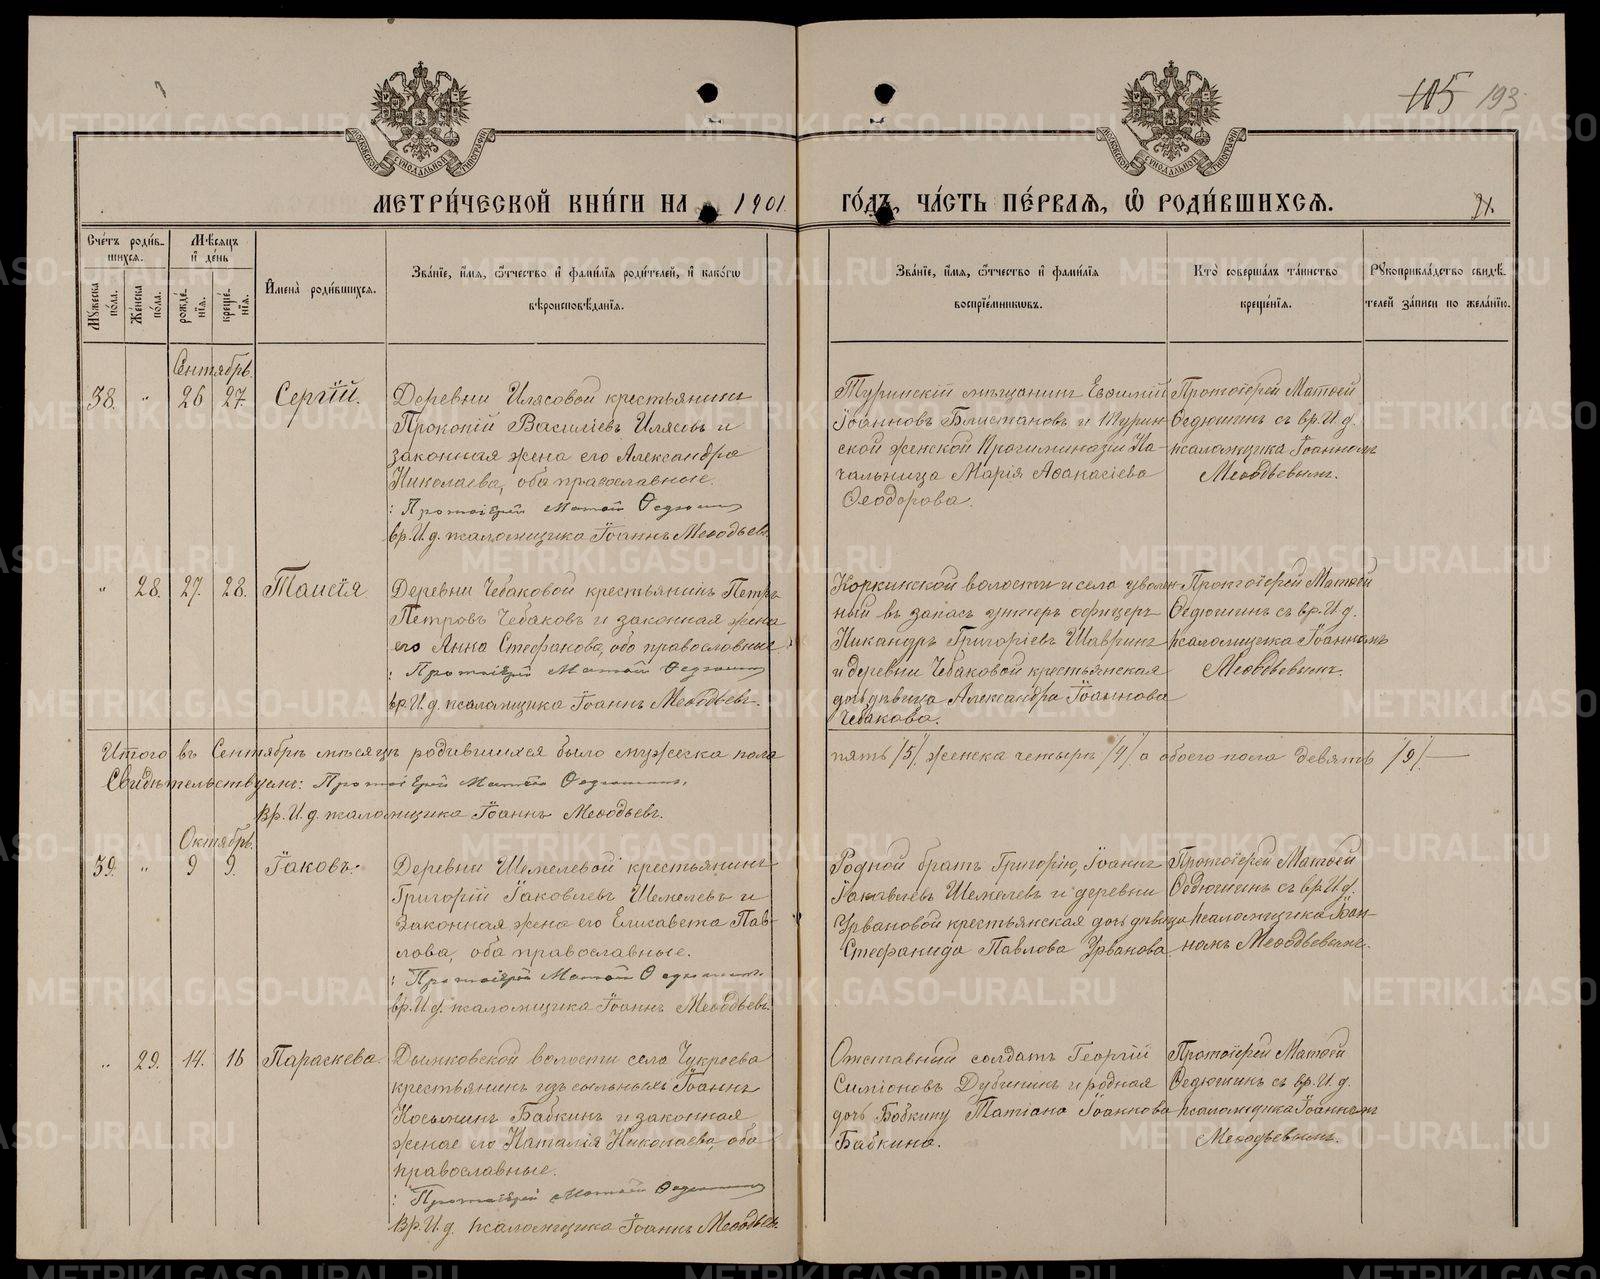 115 193
МЕТРИ́ЧЕСКОЙ КНИ́ГИ НА 1901 ГО́ДЪ, ЧА́СТЬ ПЕ́РВАѦ, Ѡ҆ РОДИ́ВШИХСѦ.
21.
Сче́тъ роди́вшихся.
Мѣ́сяцъ и҆ де́нь
И҆мена̀ роди́вшихся.
Зва́нїе, и҆́мя, ѻ҆́тчество и҆ фами́лїя роди́телей, и҆ како́гѡ
вѣроисповѣ́данїя.
Зва́нїе, и҆́мя, ѻ҆́тчество и҆ фами́лїя
воспрїе́мникѡвъ.
Кто̀ соверша́лъ та́инство
креще́нїя.
Рꙋкоприкла́дство свидѣ́-
телей за́писи по жела́нїю.
Мꙋ́жеска по́ла.
Же́нска по́ла.
рожде́нїя.
креще́нїя.
Сентябрь.
38. " 26 27. Сергій.
Деревни Илясовой крестьянинъ
Прокопій Василіевъ Илясовъ и
законная жена его Александра
Николаева, оба православные.
: Протоіерей Матѳій Ѳедюшинъ
вр. И. д. псаломщика Іоаннъ Меѳодьевъ.
Туринскій мѣщанинъ Евѳимій
Іоанновъ Блистановъ и Турин-
ской женской Прогимназіи На-
чальница Марія Аѳанасіева
Ѳеодорова.
Протоіерей Матѳей
Ѳедюшинъ съ вр. И. д.
псаломщика Іоанномъ
Меѳодьевымъ.
" 28. 27. 28. Таисія.
Деревни Чебаковой крестьянинъ Петръ
Петровъ Чебаковъ и законная жена
его Анна Стефанова, оба православные.
: Протоіерей Матѳій Ѳедюшинъ
вр. И. д. псаломщика Іоаннъ Меѳодьевъ.
Коркинской волости и села уволен-
ный въ запасъ унтеръ офицеръ
Никандръ Григоріевъ Шавринъ
и деревни Чебаковой крестьянская
дочь дѣвица Александра Іоаннова
Чебакова.
Протоіерей Матѳей
Ѳедюшинъ съ вр. И. д.
псаломщика Іоанномъ
Меѳодьевымъ.
Итого въ Сентябрѣ мѣсяцѣ родившихся было мужеска пола пять /5/ женска четыре /4/ а обоего пола девять /9/ —
Свидѣтельствуемъ: Протоіерей Матѳій Ѳедюшинъ.
Вр. И. д. псаломщика Іоаннъ Меѳодьевъ.
Октябрь.
39. " 9 9. Іаковъ.
Деревни Шемелевой крестьянинъ
Григорій Іаковлевъ Шемелевъ и
законная жена его Елисавета Пав-
лова, оба православные.
: Протоіерей Матѳій Ѳедюшинъ.
вр. И. д. псаломщика Іоаннъ Меѳодьевъ.
Родной братъ Григорію, Іоаннъ
Іаковлевъ Шемелевъ и деревни
Урвановой крестьянская дочь дѣвица
Стефанида Павлова Урванова.
Протоіерей Матѳей
Ѳедюшинъ съ вр. И. д.
псаломщика Іоан-
номъ Меѳодьевымъ.
" 29. 14. 16 Параскева.
Дымковской волости села Чукреева
крестьянинъ изъ ссыльныхъ Іоаннъ
Косьминъ Бабкинъ и законная
жена его Наталія Николаева, оба
православные.
: Протоіерей Матѳій Ѳедюшинъ
Вр. И. д. псаломщика Іоаннъ Меѳодьевъ.
Отставный солдатъ Георгій
Симіоновъ Дубининъ и родная
дочь Бабкину Татіана Іоаннова
Бабкина.
Протоіерей Матѳей
Ѳедюшинъ съ вр. И. д.
псаломщика Іоанномъ
Меѳодьевымъ.
METRIKI.GASO-URAL.RU